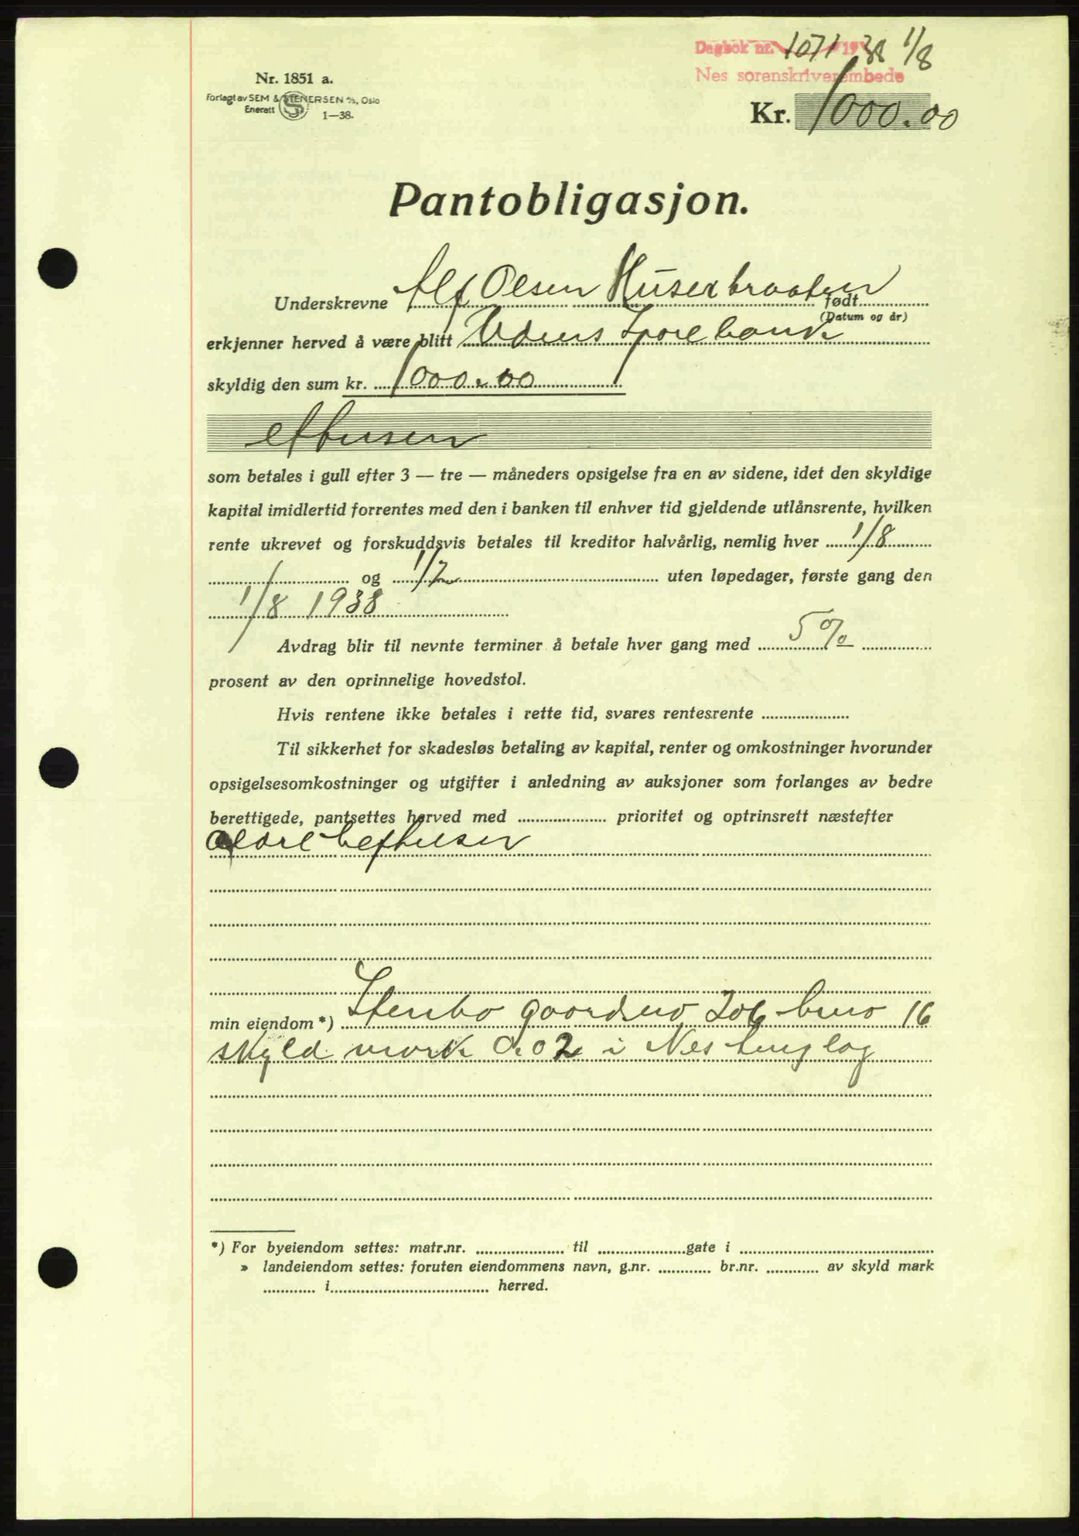 Dagbok nr. 1071 1938 1/8
Nes sorenskriverembede
Nr. 1851 a.
Forlagt av SEM & STENERSEN A/S, Oslo
Enerett
1—38.
Kr. 1000.00
Pantobligasjon.
Underskrevne Alf Olsen Huserbraaten født
(Datum og år)
erkjenner herved å være blitt Udnes Sparebank
skyldig den sum kr. 1000.00
ettusen
som betales i gull efter 3 — tre — måneders opsigelse fra en av sidene, idet den skyldige
kapital imidlertid forrentes med den i banken til enhver tid gjeldende utlånsrente, hvilken
rente ukrevet og forskuddsvis betales til kreditor halvårlig, nemlig hver 1/8
og 1/2 uten løpedager, første gang den
1/8 1938
Avdrag blir til nevnte terminer å betale hver gang med 5%
prosent av den oprinnelige hovedstol.
Hvis rentene ikke betales i rette tid, svares rentesrente
Til sikkerhet for skadesløs betaling av kapital, renter og omkostninger hvorunder
opsigelsesomkostninger og utgifter i anledning av auksjoner som forlanges av bedre
berettigede, pantsettes herved med prioritet og optrinsrett næstefter
min eiendom*) Stenbo gaardsno 206 bruno 16
skyld mark 0.02 i Nes tinglag
*) For byeiendom settes: matr.nr. til gate i
» landeiendom settes: foruten eiendommens navn, g.nr. br.nr. av skyld mark
i herred.